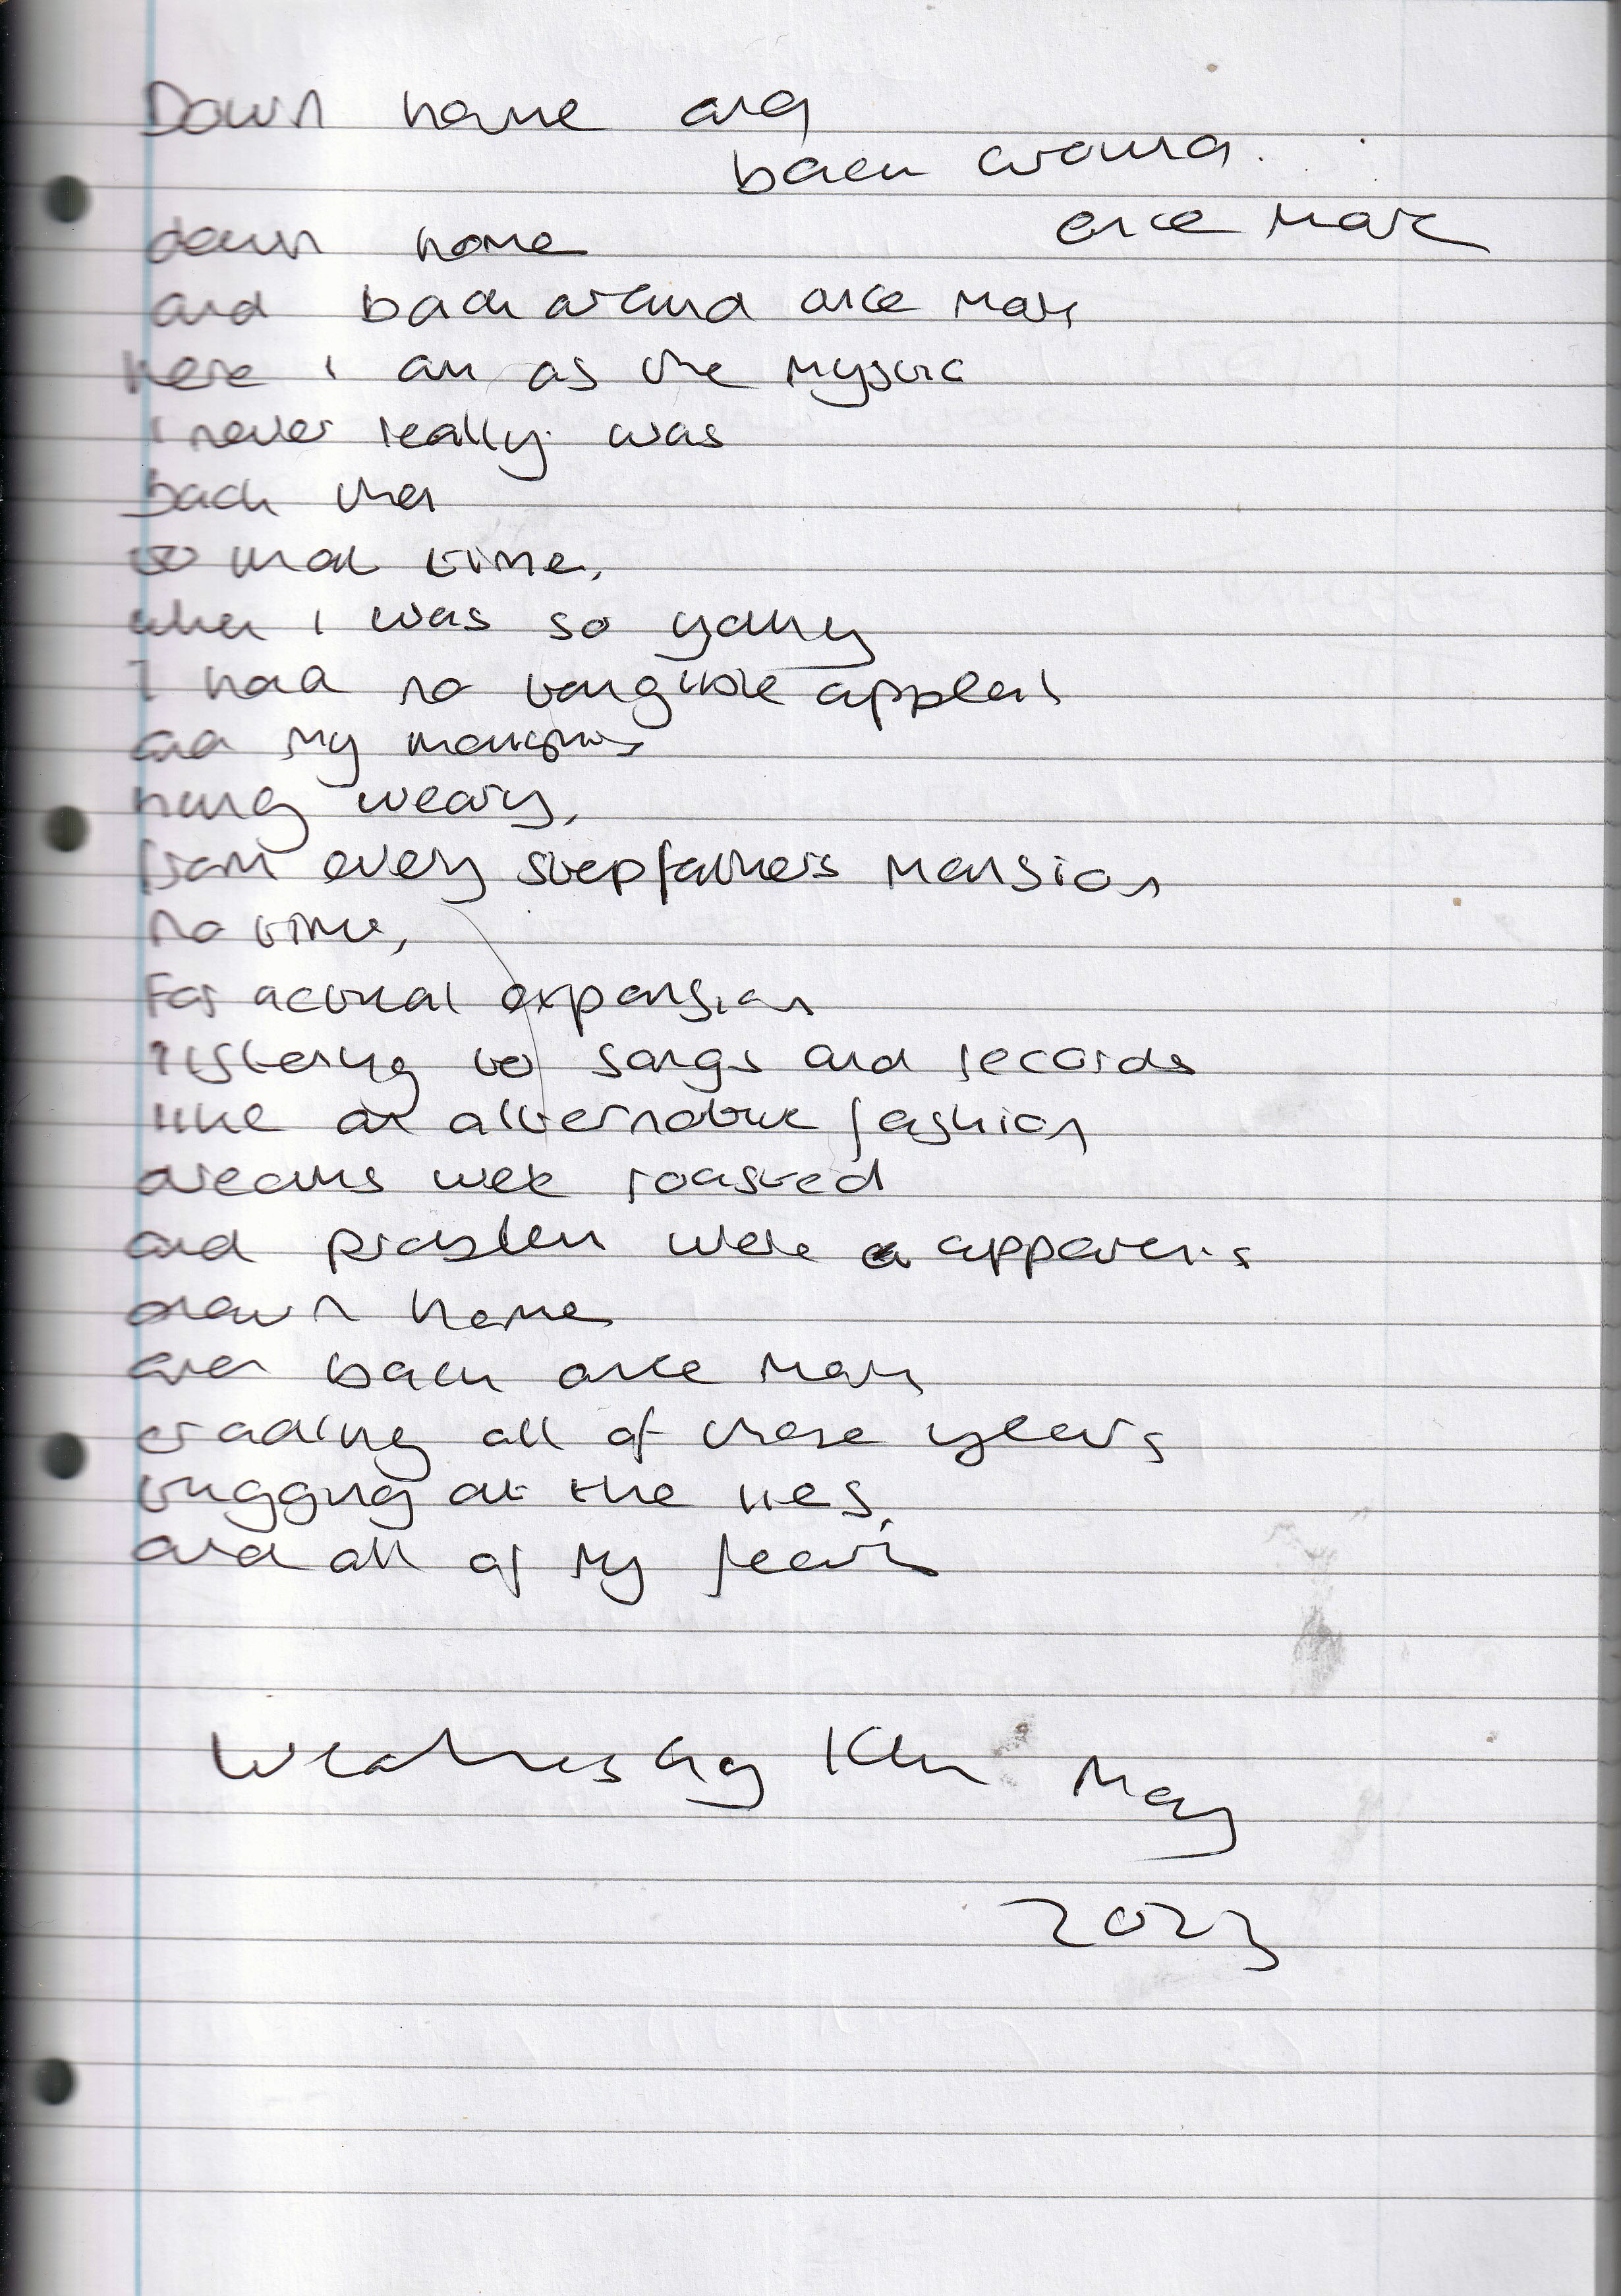 Down home and
back around
once more
down home
and back around once more
here I am as the mystic
I never really was
back then
to that time,
when I was so young
I had no tangible appeal
and my
hung weary,
from every stepfathers mansion
no time,
For actual expansion
listening to songs and records
like an alternative fashion
dreams were roasted
and problem were apparent
down home
and back once more
trading all of these years
tugging at the lies,
and all of my fears
Wednesday May
2023